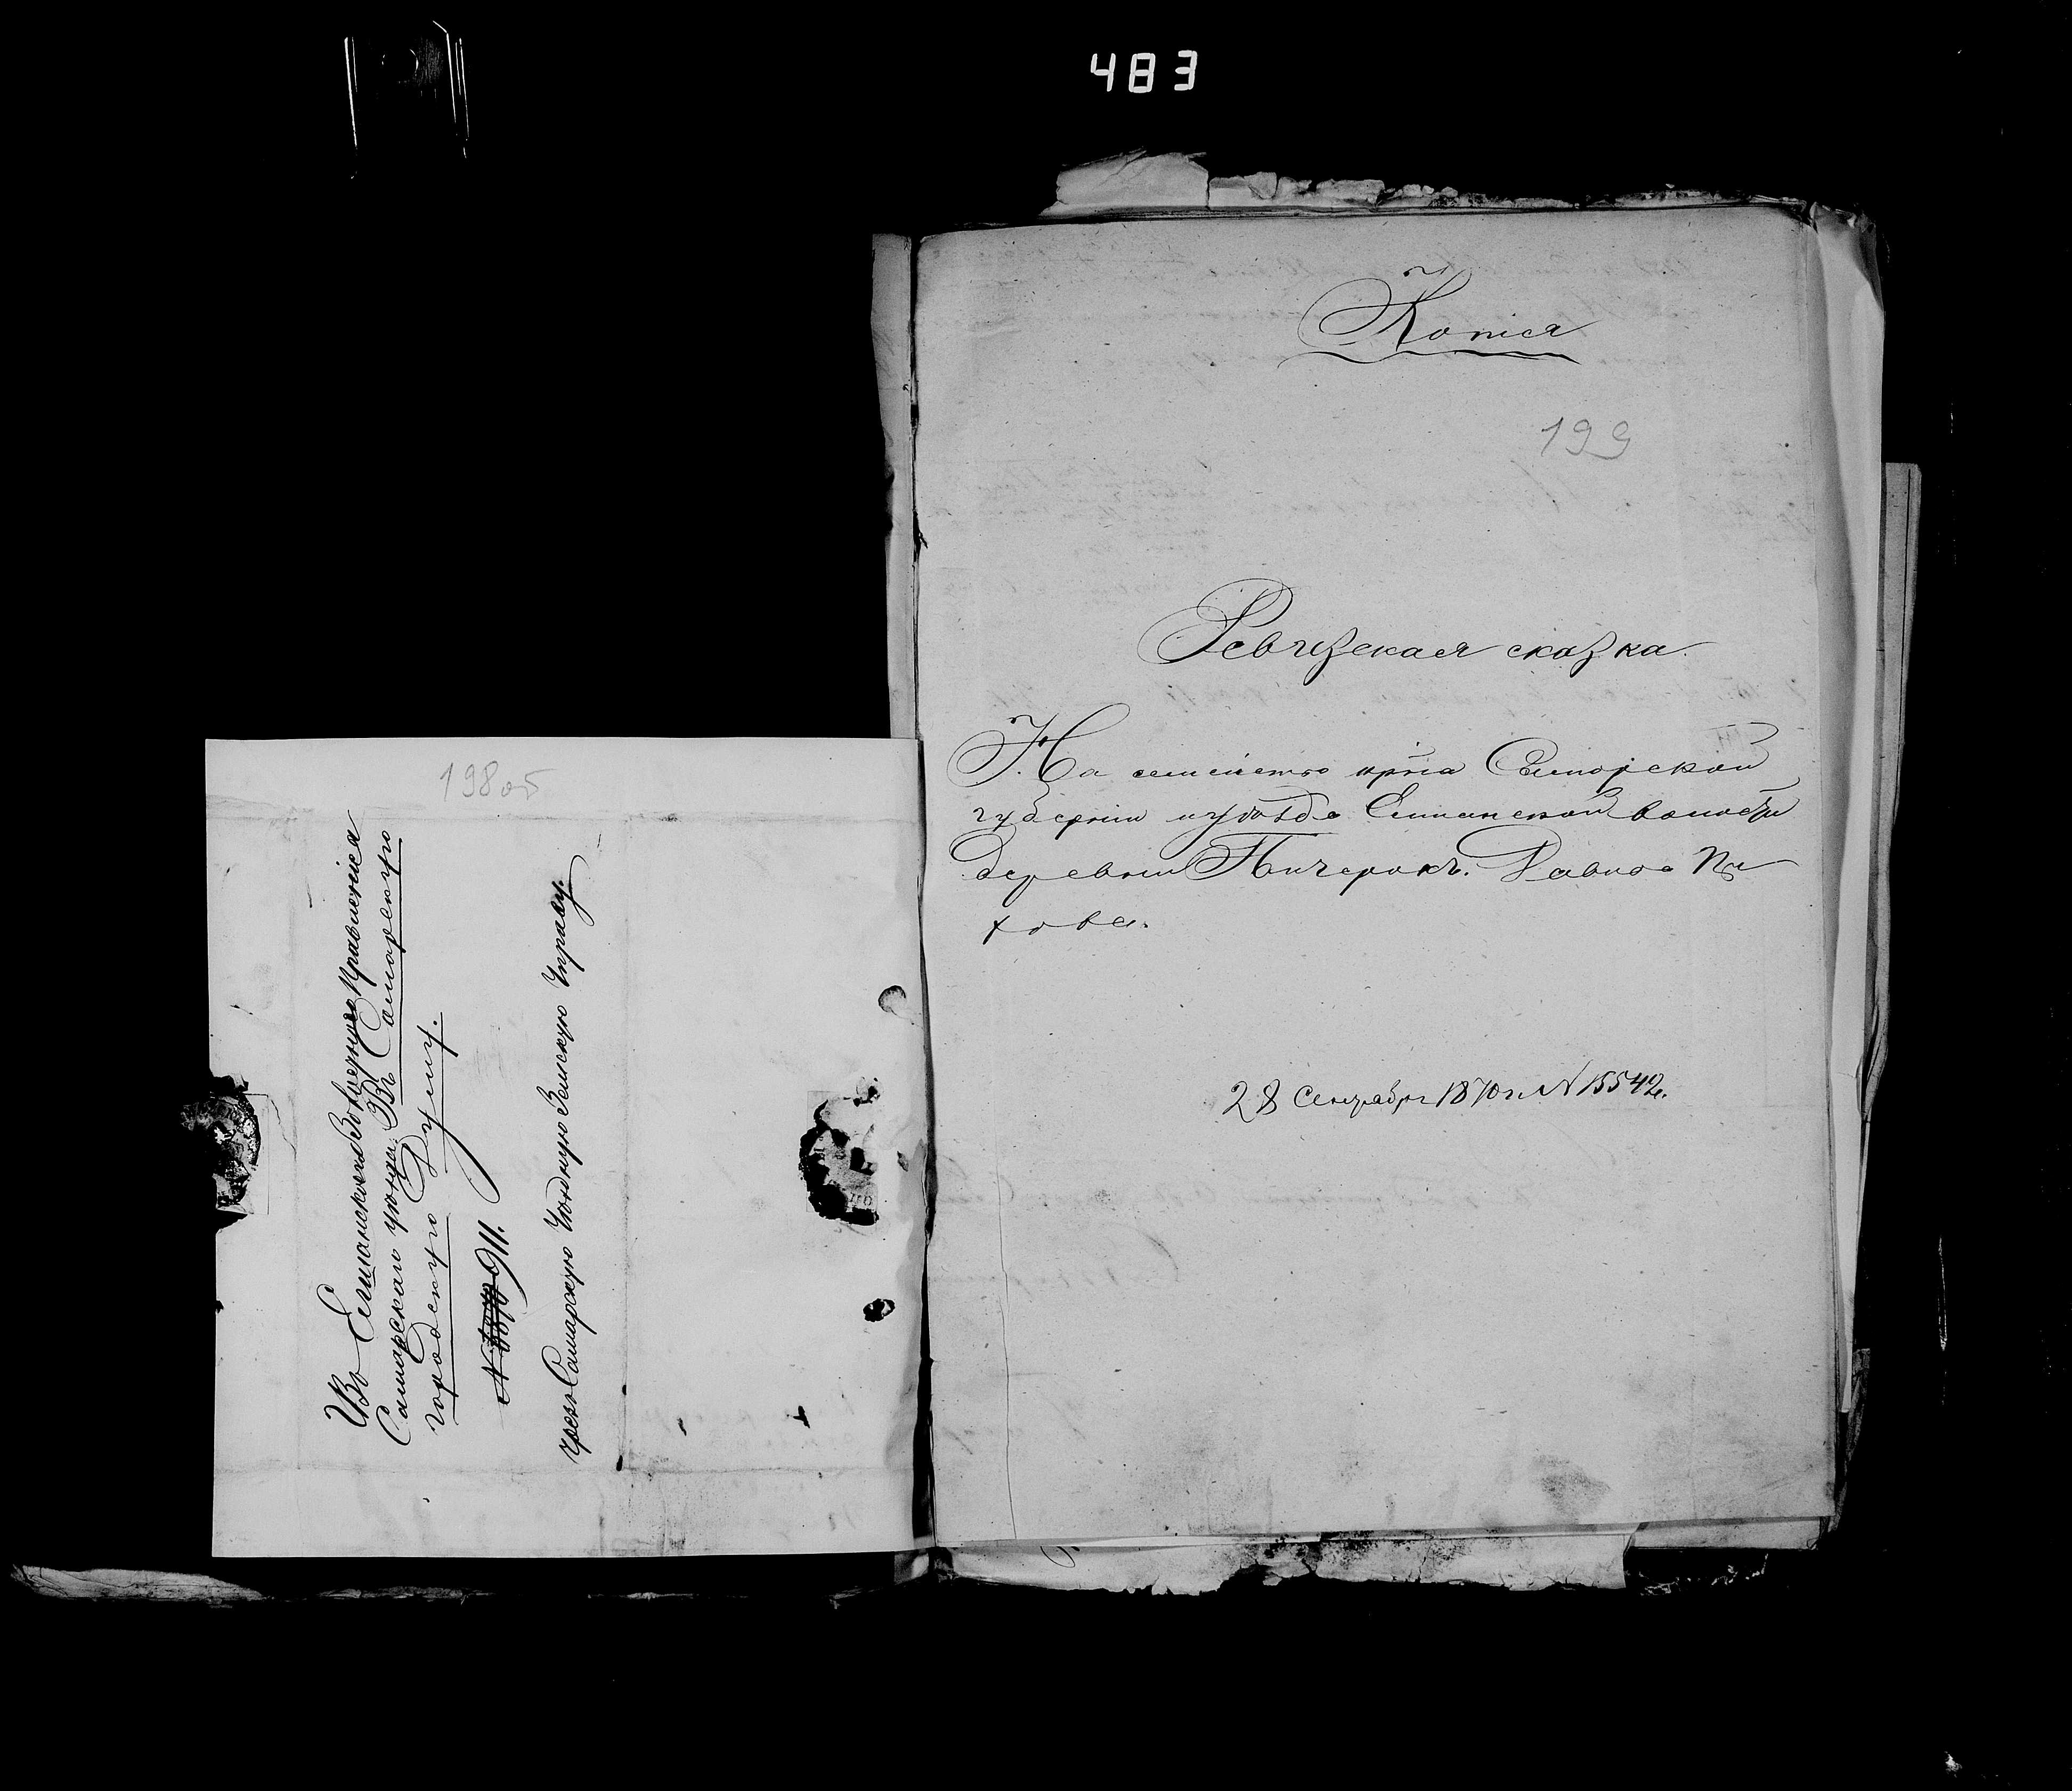 483
198об
Изъ Елшанскаго Волостнаго Правленія
Самарскаго уѣзда. Въ Самарскую
городскую Думу.
№ 911.
чрезъ Самарскую Уѣздную Земскую Управу.
Копія
199
Ревизская сказка.
На семейство кр-на Самарской
губерніи и уѣзда Елшанской волости
деревни Пичерокъ. Павла
това.
28 Сентября 1870 г. № 15542.